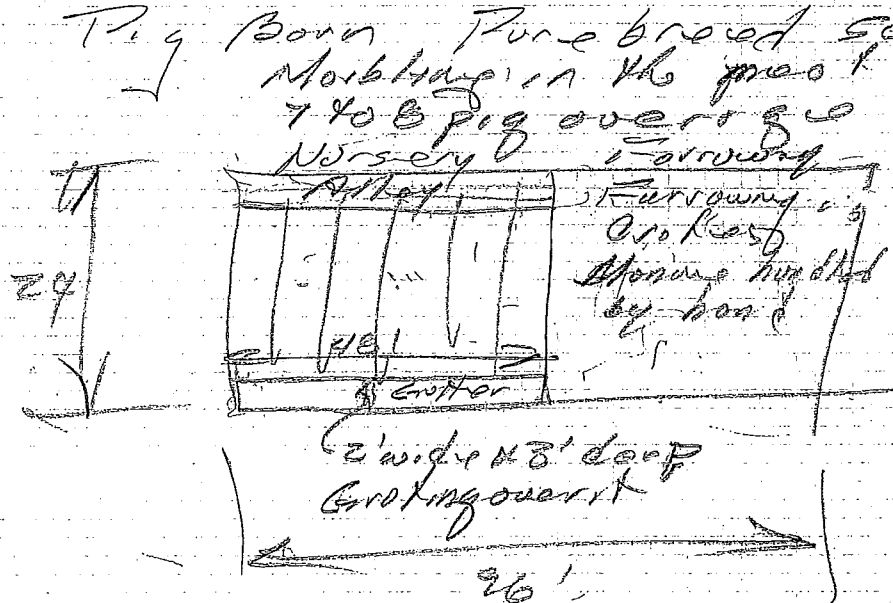 Pig Barn Purebreed
in the pit
7 to 8 pig average
Nursery Farrowing
Alley
Farrowing
Crates
Manure handled
by hand
24
48'
Gutter
2' wide x 3' deep
Grating over it
96'